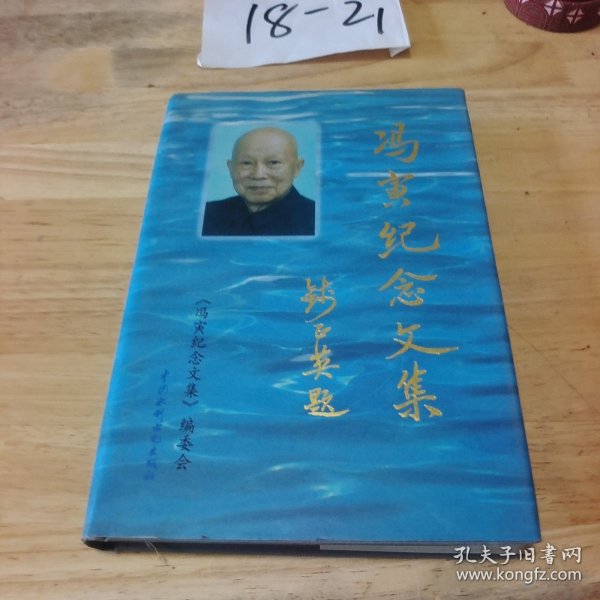 18-21
冯寅纪念文集
钱正英题
《冯寅纪念文集》编委会
中国水利水电出版社
孔夫子旧书网
www.kongfz.com